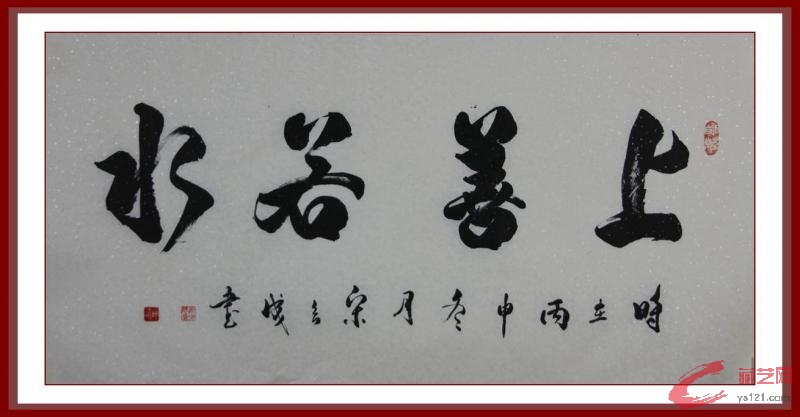 上善若水
時在丙申冬月宋立成書
藏艺网
ys121.com